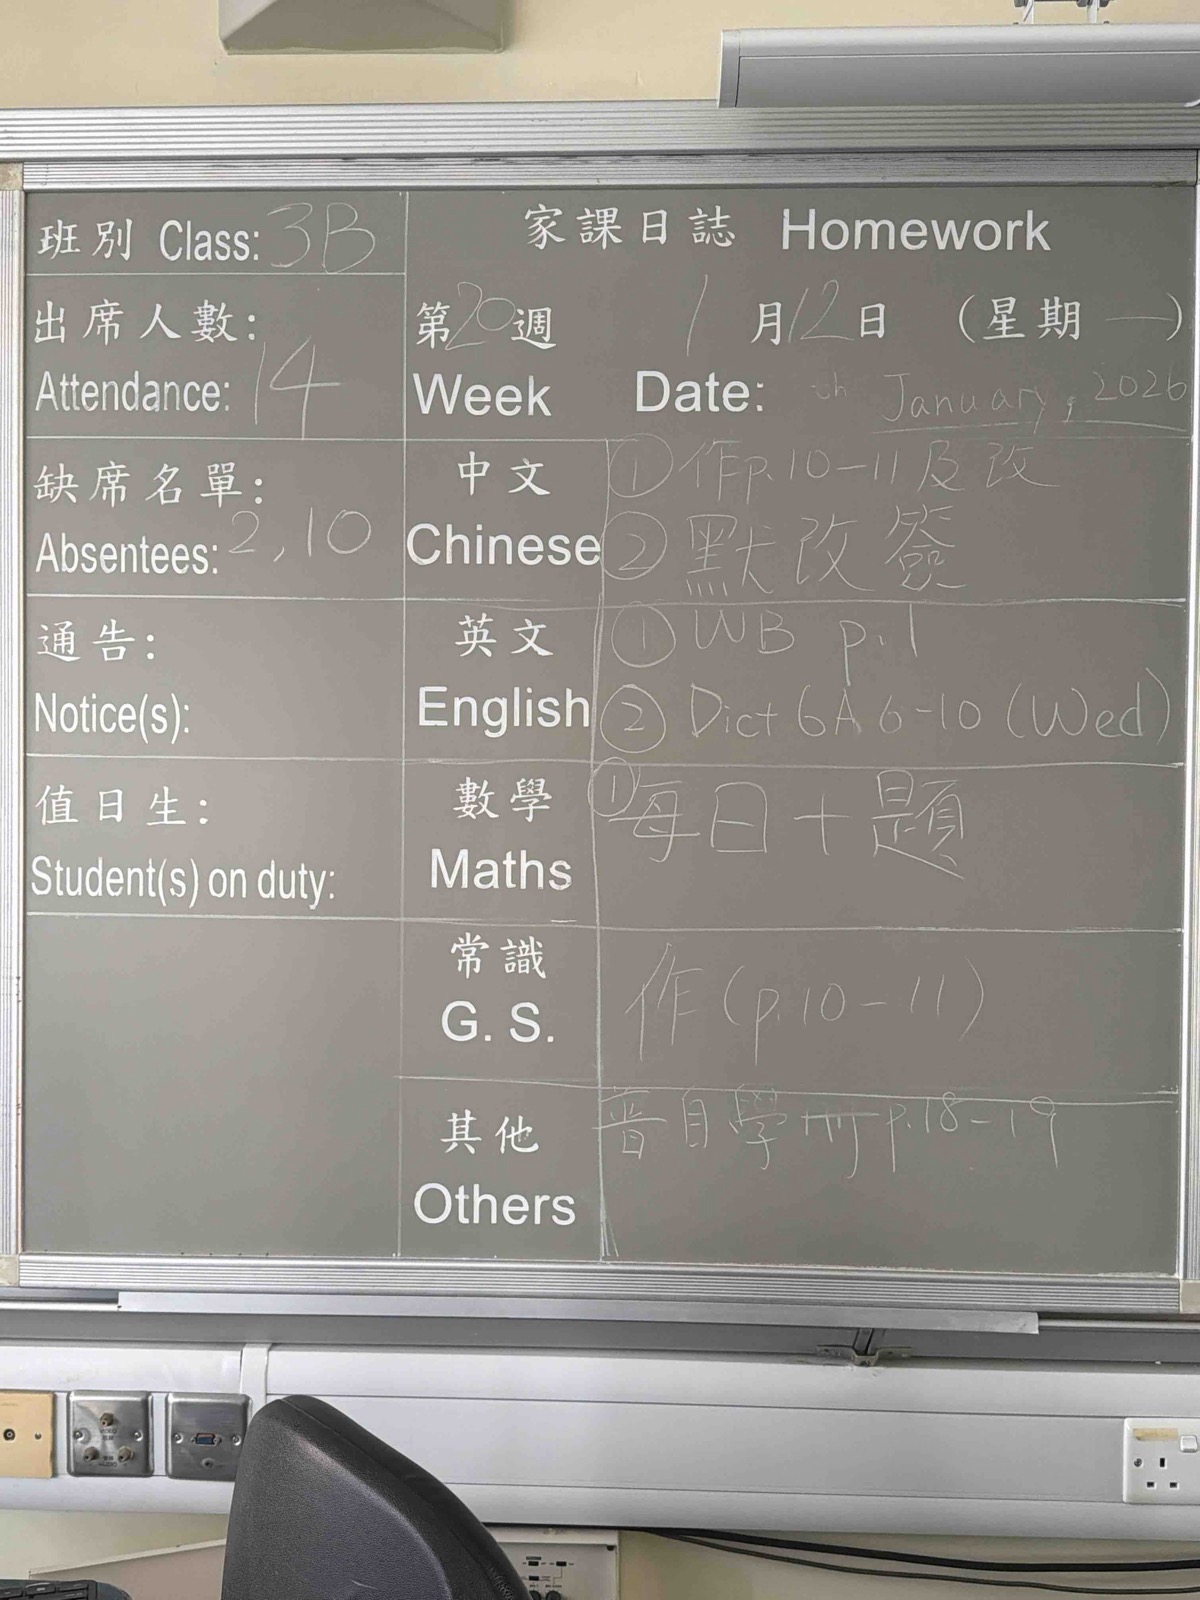 班別 Class: 3B
出席人數:
Attendance: 14
缺席名單:
Absentees: 2, 10
通告:
Notice(s):
值日生:
Student(s) on duty:
家課日誌 Homework
第20週 1月12日 (星期一)
Week Date: th January, 2026
中文 ①作p.10-11及改
Chinese ②默改簽
英文 ①WB p.1
English ②Dict 6A 6-10 (Wed)
數學 ①每日十題
Maths
常識
G. S. 作(p.10-11)
其他 普自學冊p.18-19
Others